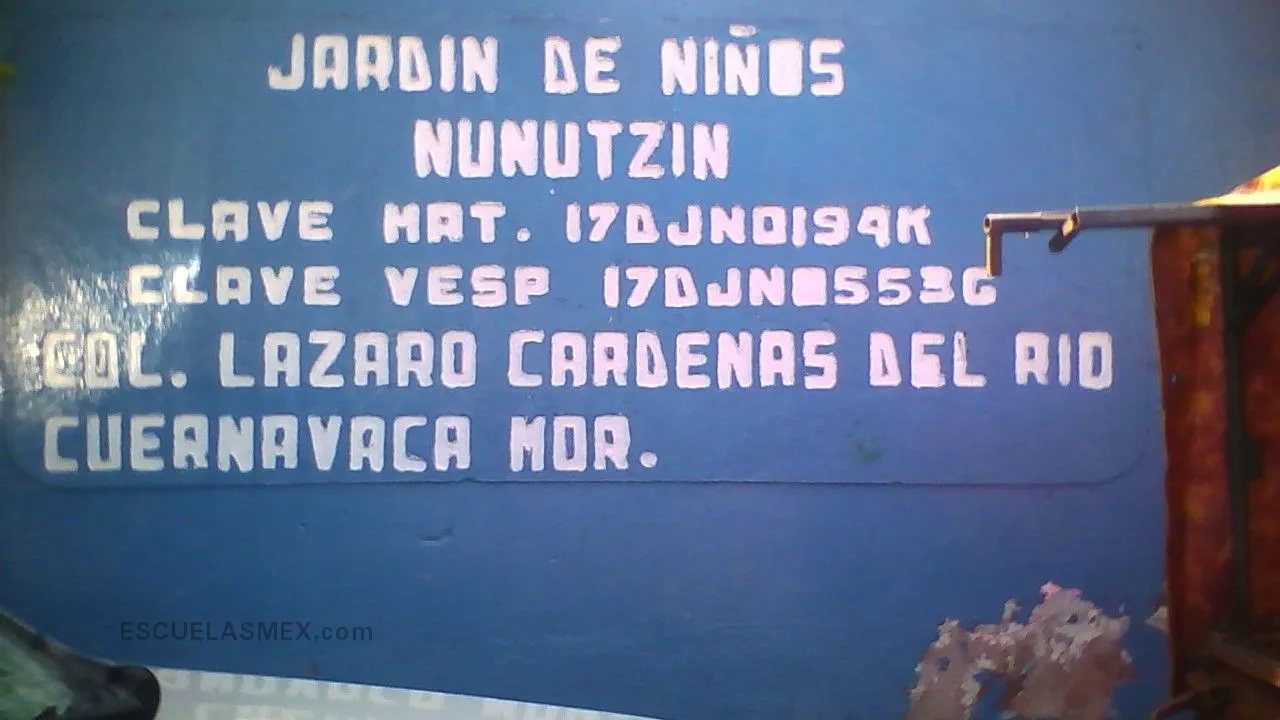 JARDIN DE NIÑOS
NUNUTZIN
CLAVE MAT. 17DJN0194K
CLAVE VESP 17DJN0553G
COL. LAZARO CARDENAS DEL RIO
CUERNAVACA MOR.
ESCUELASMEX.com